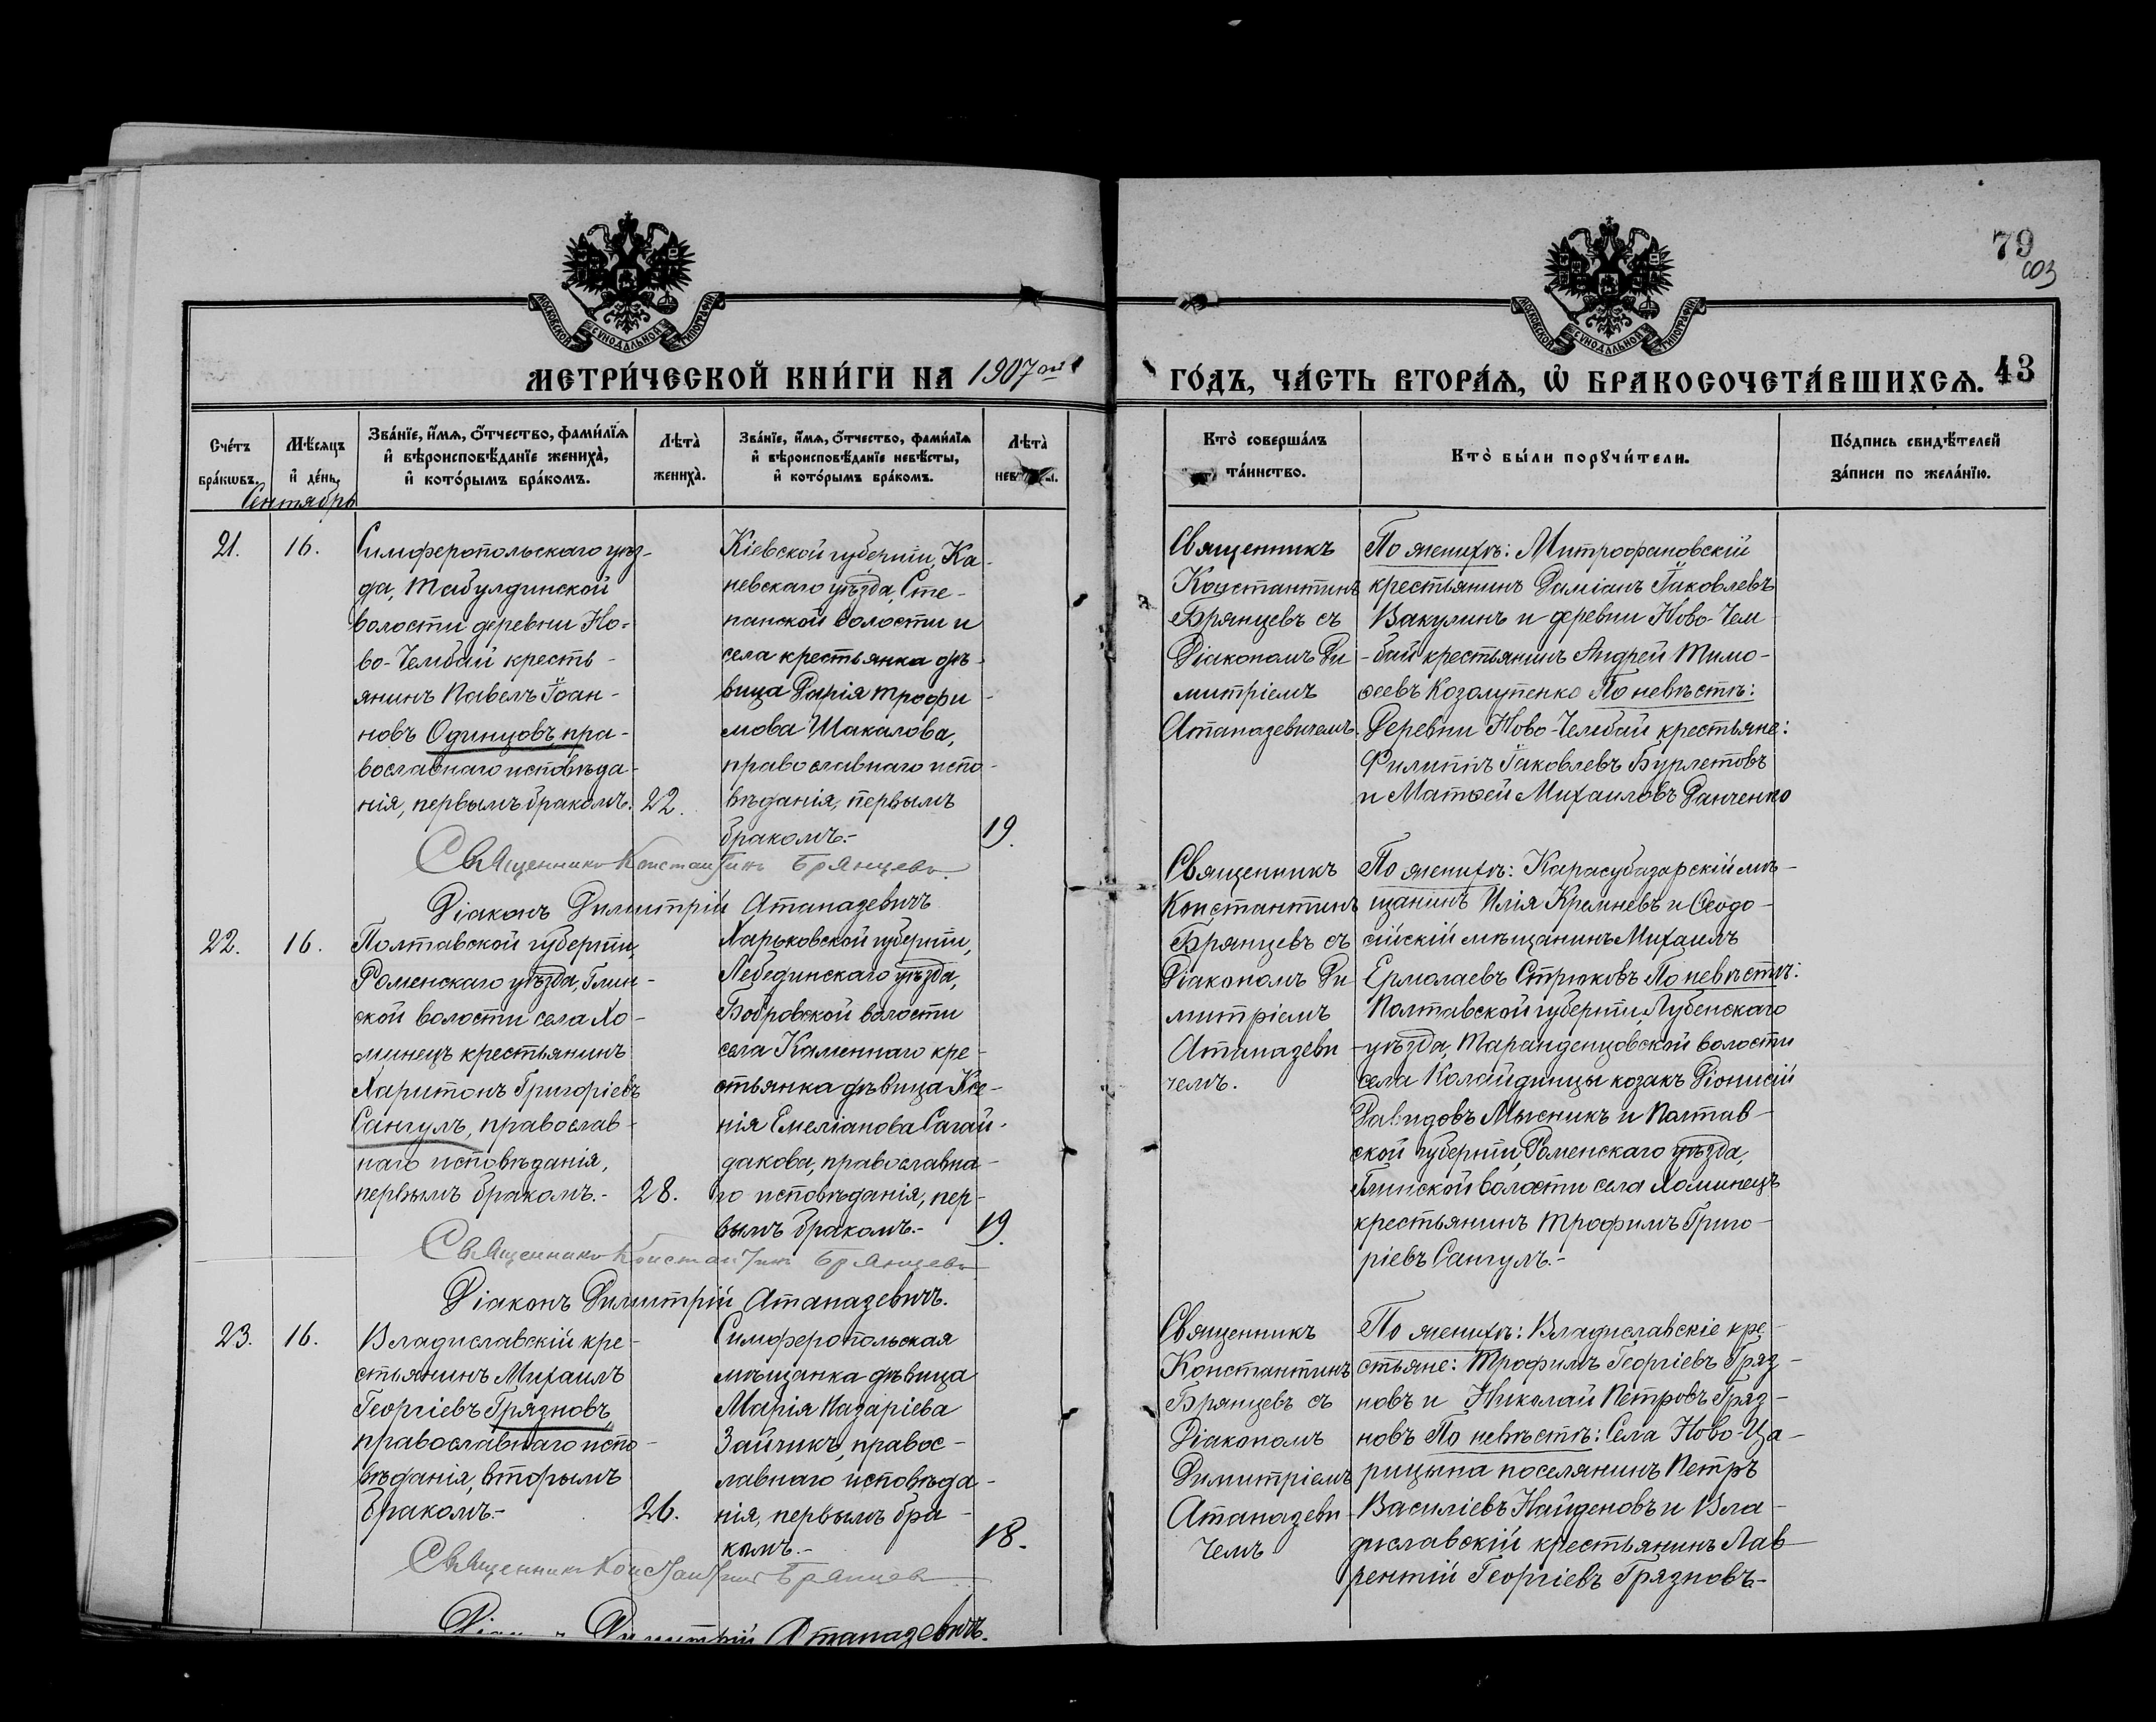 79
МОСКОВСКОЙ СѴНОДАЛЬНОЙ ТИПОГРАФІИ
МОСКОВСКОЙ СѴНОДАЛЬНОЙ ТИПОГРАФІИ
МЕТРИ́ЧЕСКОЙ КНИ́ГИ НА 1907
ГО́ДЪ, ЧА́СТЬ ВТОРА́Ѧ, Ѽ БРАКОСОЧЕТА́ВШИХСѦ. 43
Сче́тъ бра́кѡвъ.
Мѣ́сѧцъ и҆ де́нь.
Зва́нїе, и҆́мѧ, ѻ҆́тчество, фами́лїѧ и҆ вѣроисповѣ́данїе жениха̀, и҆ кото́рымъ бра́комъ.
Лѣта̀ жениха̀.
Зва́нїе, и҆́мѧ, ѻ҆́тчество, фами́лїѧ и҆ вѣроисповѣ́данїе невѣ́сты, и҆ кото́рымъ бра́комъ.
Лѣта̀
Кто̀ соверша́лъ та́инство.
Кто̀ бы́ли порꙋчи́тели.
По́дпись свидѣ́телей за́писи по жела́нїю.
Сентябрь
21.
16.
Симферопольскаго уѣз-
да, Табулдинской
волости деревни Но-
во-Чембай кресть-
янинъ Павелъ Іоан-
новъ Одинцовъ, пра-
вославнаго исповѣда-
нія, первымъ бракомъ.
22.
Кіевской губерніи, Ка-
невскаго уѣзда, Сте-
панской волости и
села крестьянка дѣ-
вица Дарія Трофи-
мова Шакалова,
православнаго испо-
вѣданія, первымъ
бракомъ.-
19.
Священникъ
Константинъ
Брянцевъ съ
Діакономъ Ди-
митріемъ
Атаназевичемъ.
По женихѣ: Митрофановскій
крестьянинъ Даміанъ Іаковлевъ
Вакулинъ и деревни Ново-Чем-
бай крестьянинъ Андрей Тимо-
ѳеевъ Козолупенко По невѣстѣ:
Деревни Ново-Чембай крестьяне:
Филиппъ Іаковлевъ Бурлетовъ
и Матѳей Михаиловъ Ранченко
Священникъ Константинъ Брянцевъ.
Діаконъ Димитрій Атаназевичъ
22.
16.
Полтавской губерніи,
Роменскаго уѣзда, Глин-
ской волости села Хо-
минецъ крестьянинъ
Харитонъ Григоріевъ
Сангулъ, православ-
наго исповѣданія,
первымъ бракомъ.-
28.
Харьковской губерніи,
Лебединскаго уѣзда,
Бобровской волости
села Каменнаго кре-
стьянка дѣвица Ксе-
нія Емеліанова Сагай-
дакова, православна-
го исповѣданія, пер-
вымъ бракомъ.-
19.
Священникъ
Константинъ
Брянцевъ съ
Діакономъ Ди-
митріемъ
Атаназеви-
чемъ.
По женихѣ: Карасубазарскій мѣ-
щанинъ Илія Кремневъ и Ѳеодо-
сійскій мѣщанинъ Михаилъ
Ермолаевъ Стрюковъ По невѣстѣ:
Полтавской губерніи, Лубенскаго
уѣзда, Таранденцовской волости
села Калайдинцы козакъ Діонисій
Давидовъ Мысникъ и Полтав-
ской губерніи, Роменскаго уѣзда,
Глинской волости села Хоминецъ
крестьянинъ Трофимъ Григо-
ріевъ Сангулъ.-
Священникъ Константинъ Брянцевъ
Діаконъ Димитрій Атаназевичъ.
23.
16.
Владиславскій кре-
стьянинъ Михаилъ
Георгіевъ Грязновъ,
православнаго испо-
вѣданія, вторымъ
бракомъ.-
26.
Симферопольская
мѣщанка дѣвица
Марія Назаріева
Зайчикъ, правос-
лавнаго исповѣда-
нія, первымъ бра-
комъ.-
18.
Священникъ
Константинъ
Брянцевъ съ
Діакономъ
Димитріемъ
Атаназеви-
чемъ
По женихѣ: Владиславскіе кре-
стьяне: Трофимъ Георгіевъ Гряз-
новъ и Николай Петровъ Гряз-
новъ По невѣстѣ: Села Ново-Ца-
рицына поселянинъ Петръ
Василіевъ Найденовъ и Вла-
диславскій крестьянинъ Лав-
рентій Георгіевъ Грязновъ.-
Священникъ Константинъ Брянцевъ
Діаконъ Димитрій Атаназевичъ.